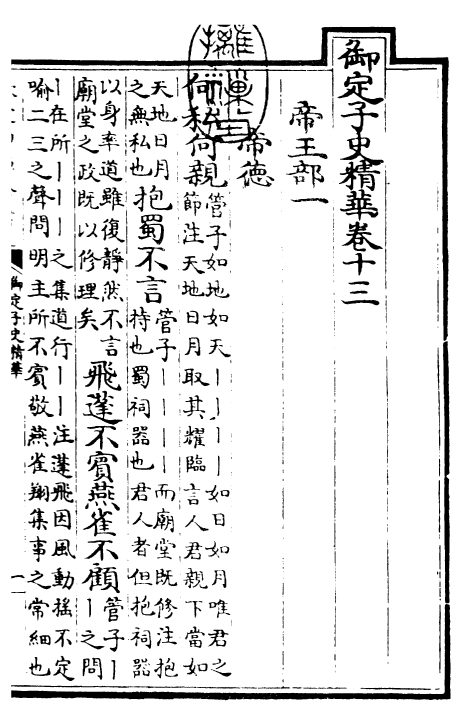 御定子史精華卷十三
帝王部一
帝德
何私何親
管子如地如天丨丨丨丨如日如月唯君之
節注天地日月取其耀臨言人君親下當如
天地日月
之無私也
抱蜀不言
管子丨丨丨丨而廟堂既修注抱
持也蜀祠器也君人者但抱祠器
以身率道雖復静然不言
廟堂之政既以修理矣
飛蓬不賓燕雀不顧
管子丨
丨之問
丨在所丨丨丨之集道行丨丨注蓬飛因風動搖不定
喻二三之聲問明主所不賓敬燕雀翔集事之常細也
御定子史精華
一